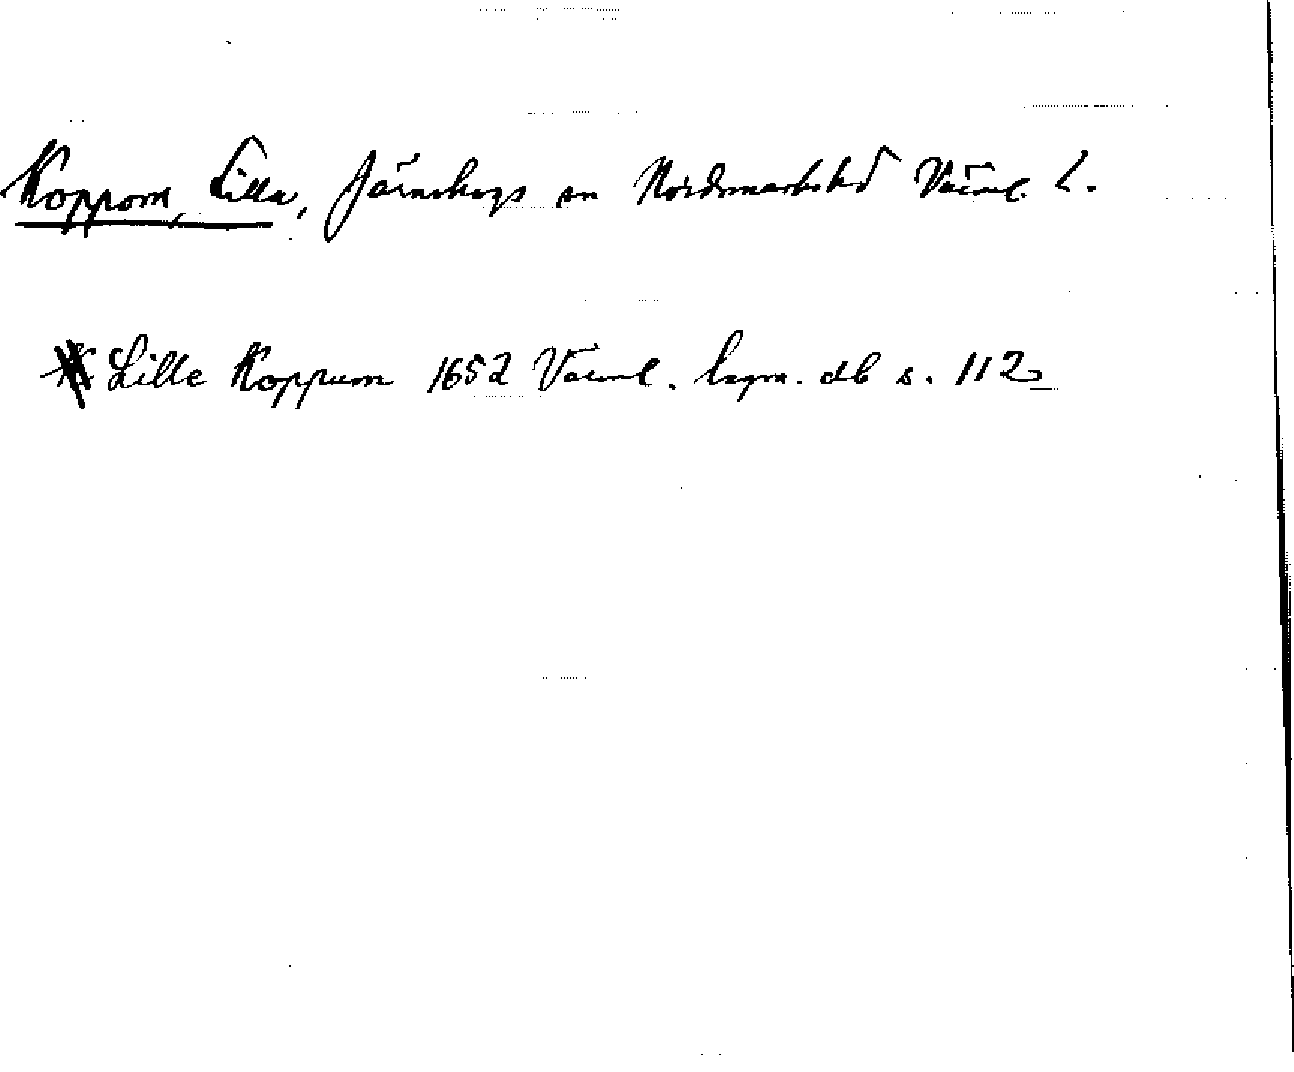 Koppom, Lilla, Järnskogs sn Nordmarks hd Värml. L.
Lille Koppum 1652 Värml. lagm. db s. 112